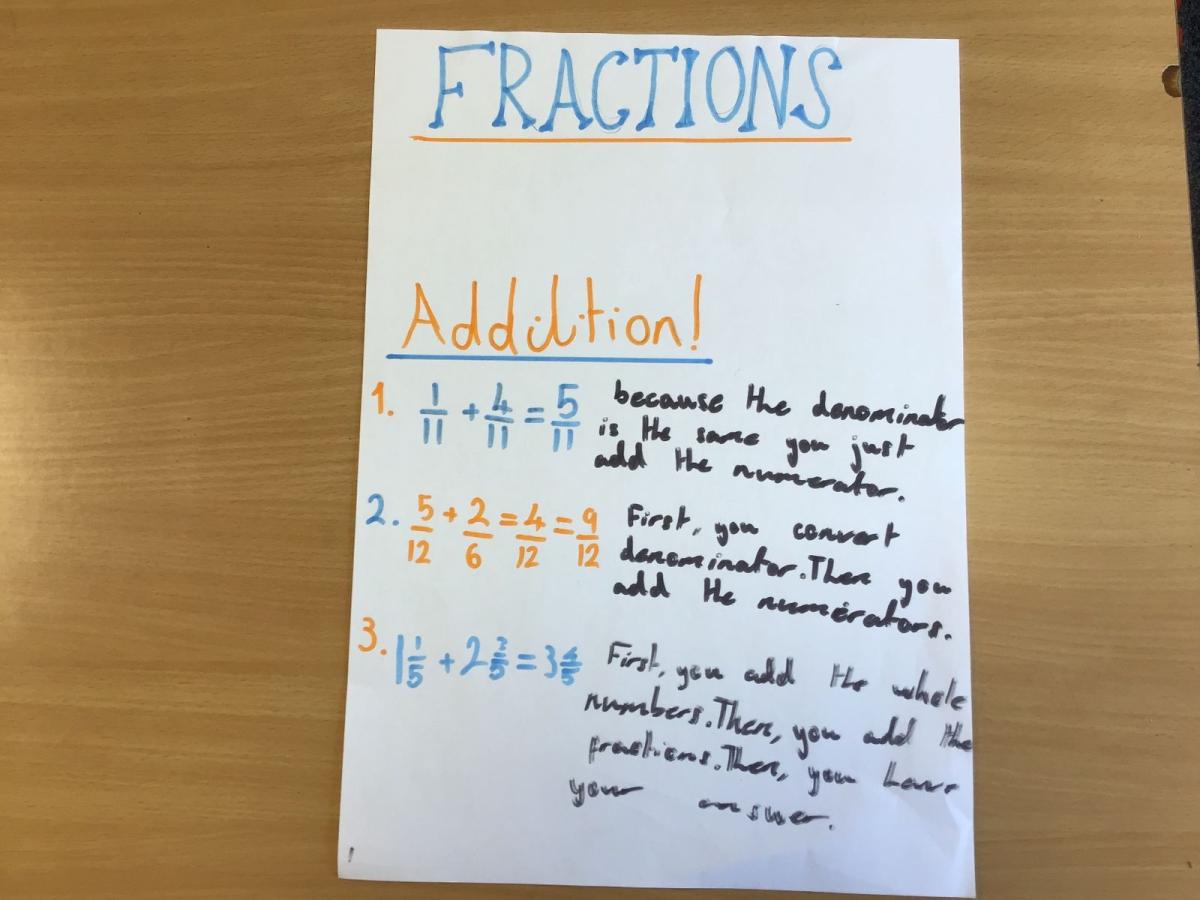 FRACTIONS
Addition!
1. 1/11 + 4/11 = 5/11
because the denominator
is the same you just
add the numerator.
2. 5/12 + 2/6 = 4/12 = 9/12
First, you convert
denominator. Then you
add the numerators.
3. 1 1/5 + 2 3/5 = 3 4/5
First, you add the whole
numbers. Then, you add the
fractions. Then, you have
your answer.